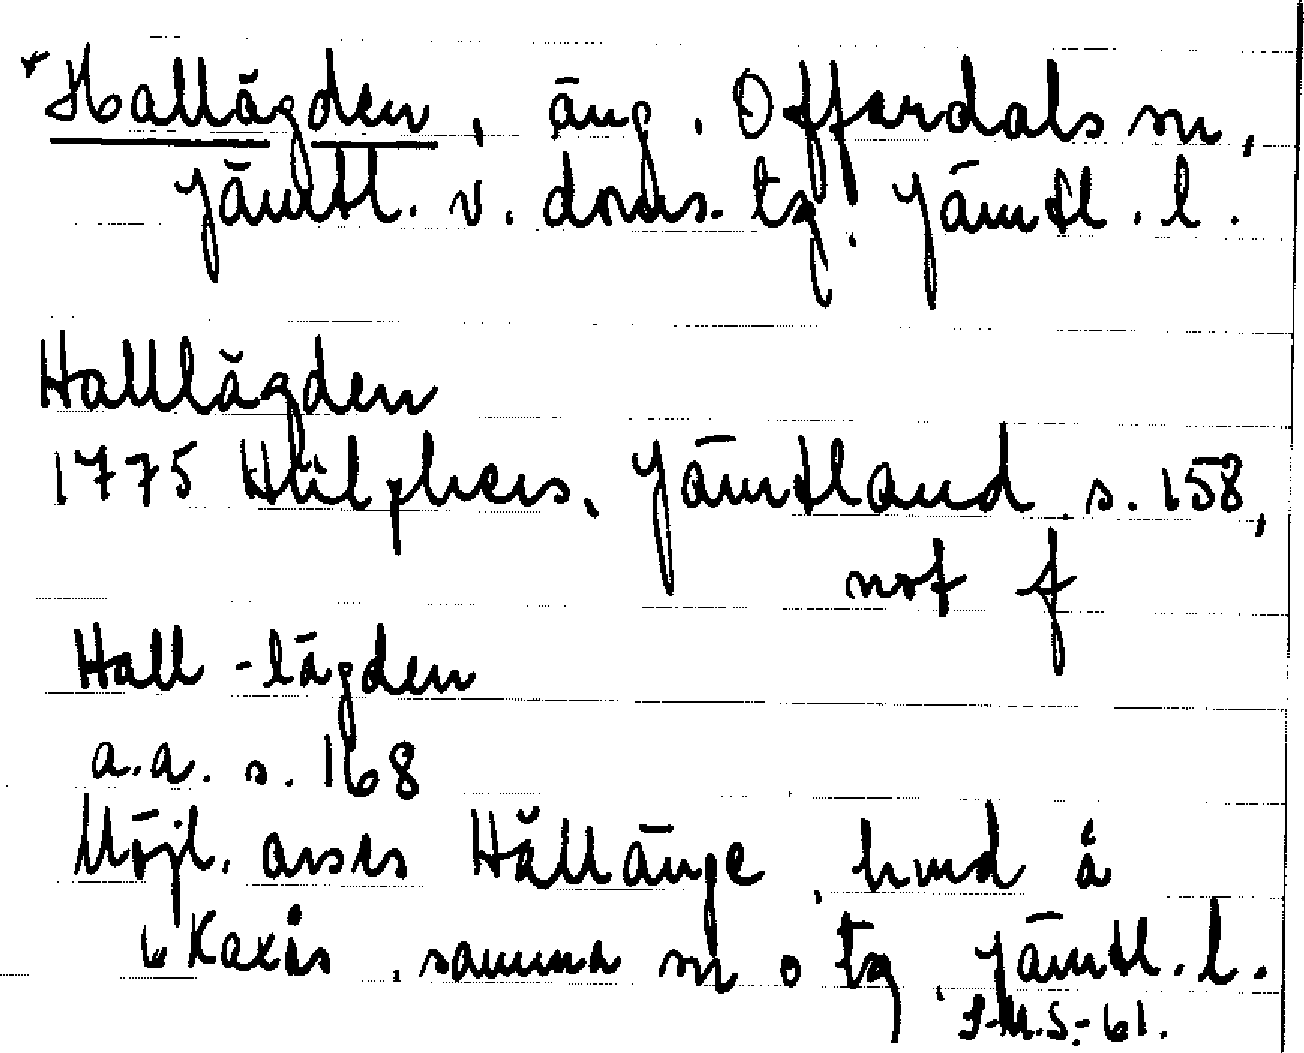 *Hallägden, äng, Offerdals sn,
Jämtl. v. doms. tg. Jämtl. l.
Halllägden
1775 Hülphers, Jämtland s. 158,
not f
Hall-lägden
a.a. s. 168
Möjl. avses Hållänge, hmd å
6 Kaxås, samma sn o tg, Jämtl. l.
I-M.S.-61.